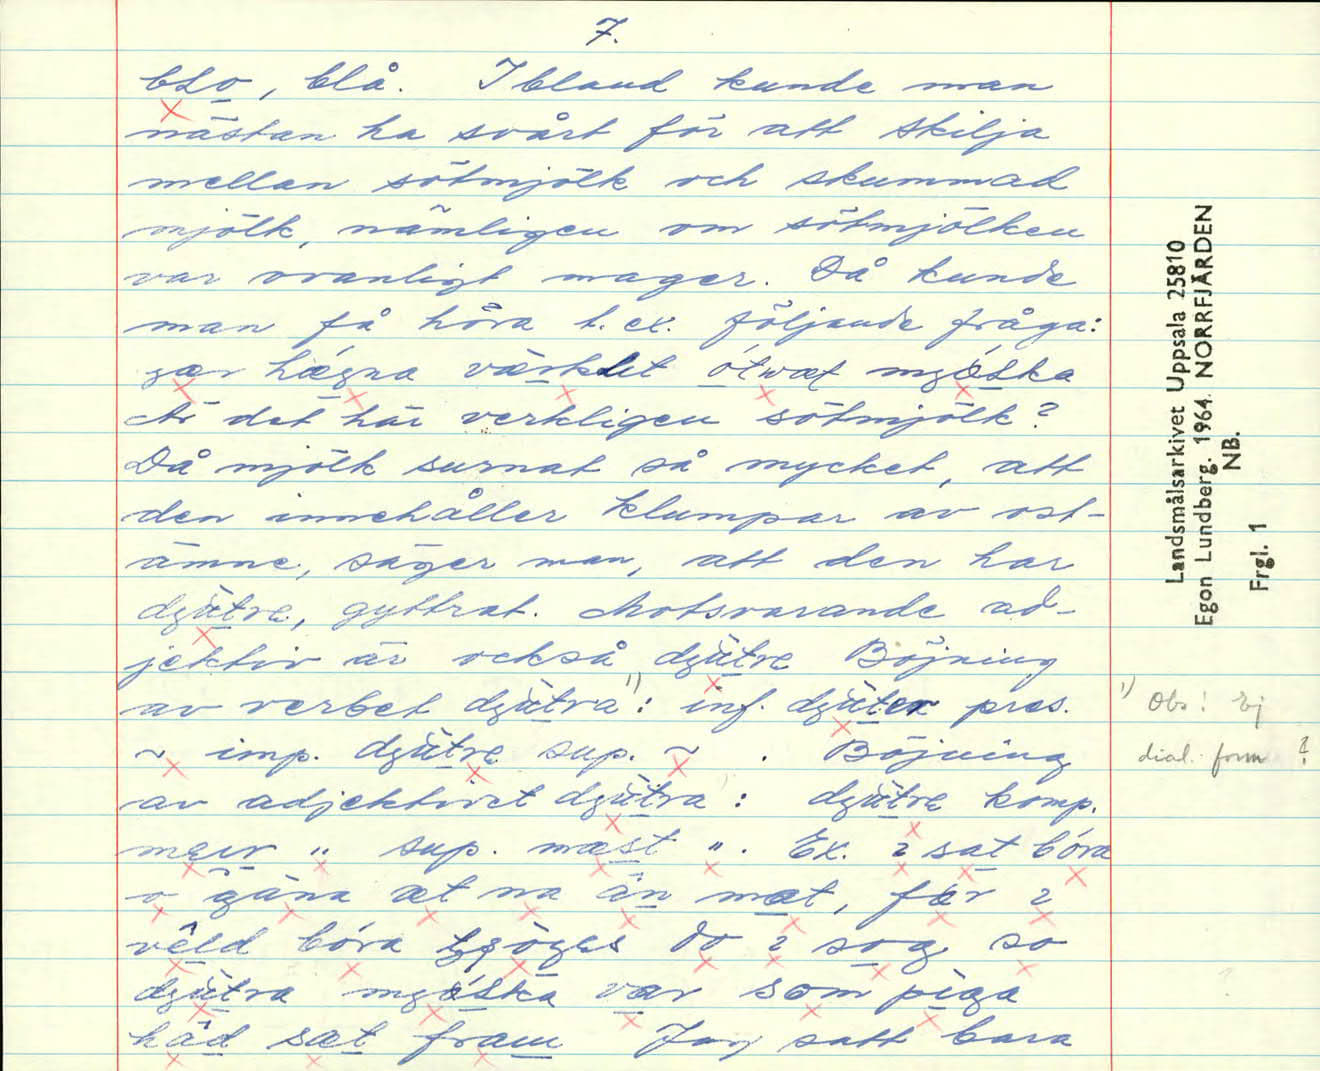 7.
bLo, blå. Ibland kunde man
nästan ha svårt för att skilja
mellan sötmjölk och skummad
mjölk, nämligen om sötmjölken
var ovanligt mager. Då kunde
man få höra t.ex. följande fråga:
Är det här verkligen sötmjölk?
Då mjölk surnat så mycket, att
den innehåller klumpar av ost-
ämne, säger man, att den har
dʒütra, gyttrat. Motsvarande ad-
jektiv är också dʒütra Böjning
av verbet dʒütra ¹⁾: inf. dʒüter pres.
~ imp. dʒütra sup. ~ . Böjning
av adjektivet dʒütra : dʒütra komp.
meir " sup. mæst ". Ex. sat bóra
o gäna æt na än mæt, fær
vêld bóra do sog so
dʒütra som piga
håd sæt fram Jag satt bara
1) Obs! Ej
dial. form ?
Landsmålsarkivet Uppsala 25810
Egon Lundberg. 1964. NORRFJÄRDEN
NB.
Frgl. 1